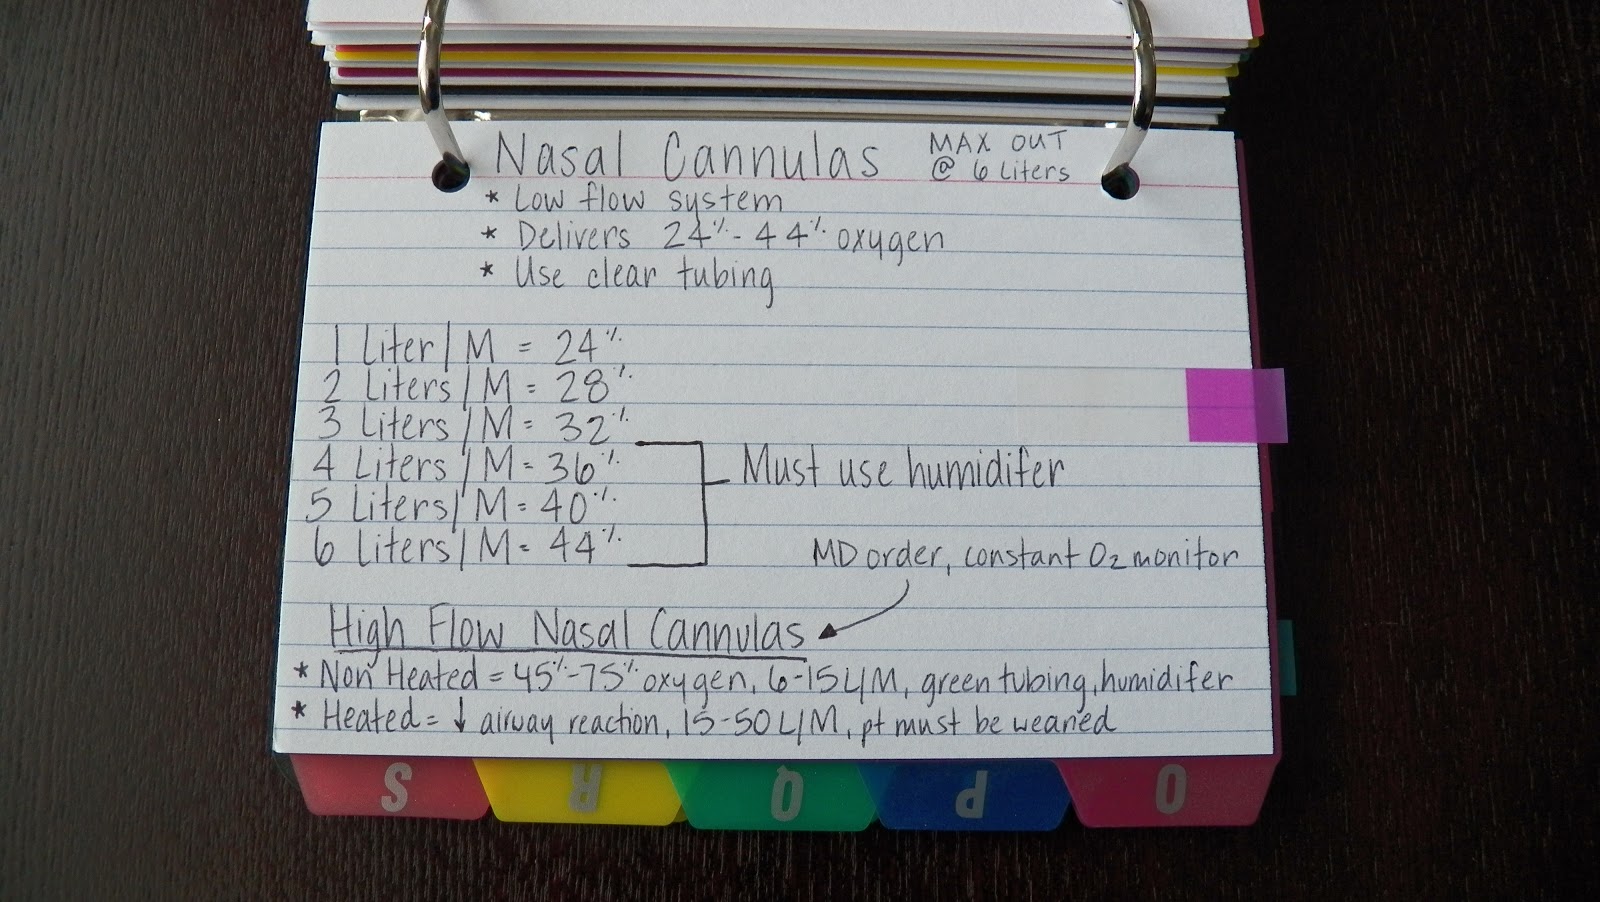 Nasal Cannulas
MAX OUT
@ 6 Liters
* Low flow system
* Delivers 24%-44% oxygen
* Use clear tubing
1 Liter/M = 24%
2 Liters/M = 28%
3 Liters/M = 32%
4 Liters/M = 36%
5 Liters/M = 40%
6 Liters/M = 44%
Must use humidifer
MD order, constant O₂ monitor
High Flow Nasal Cannulas
* Non Heated = 45%-75% oxygen, 6-15 L/M, green tubing, humidifer
* Heated = ↓ airway reaction, 15-50 L/M, pt must be weaned
S R Q P O